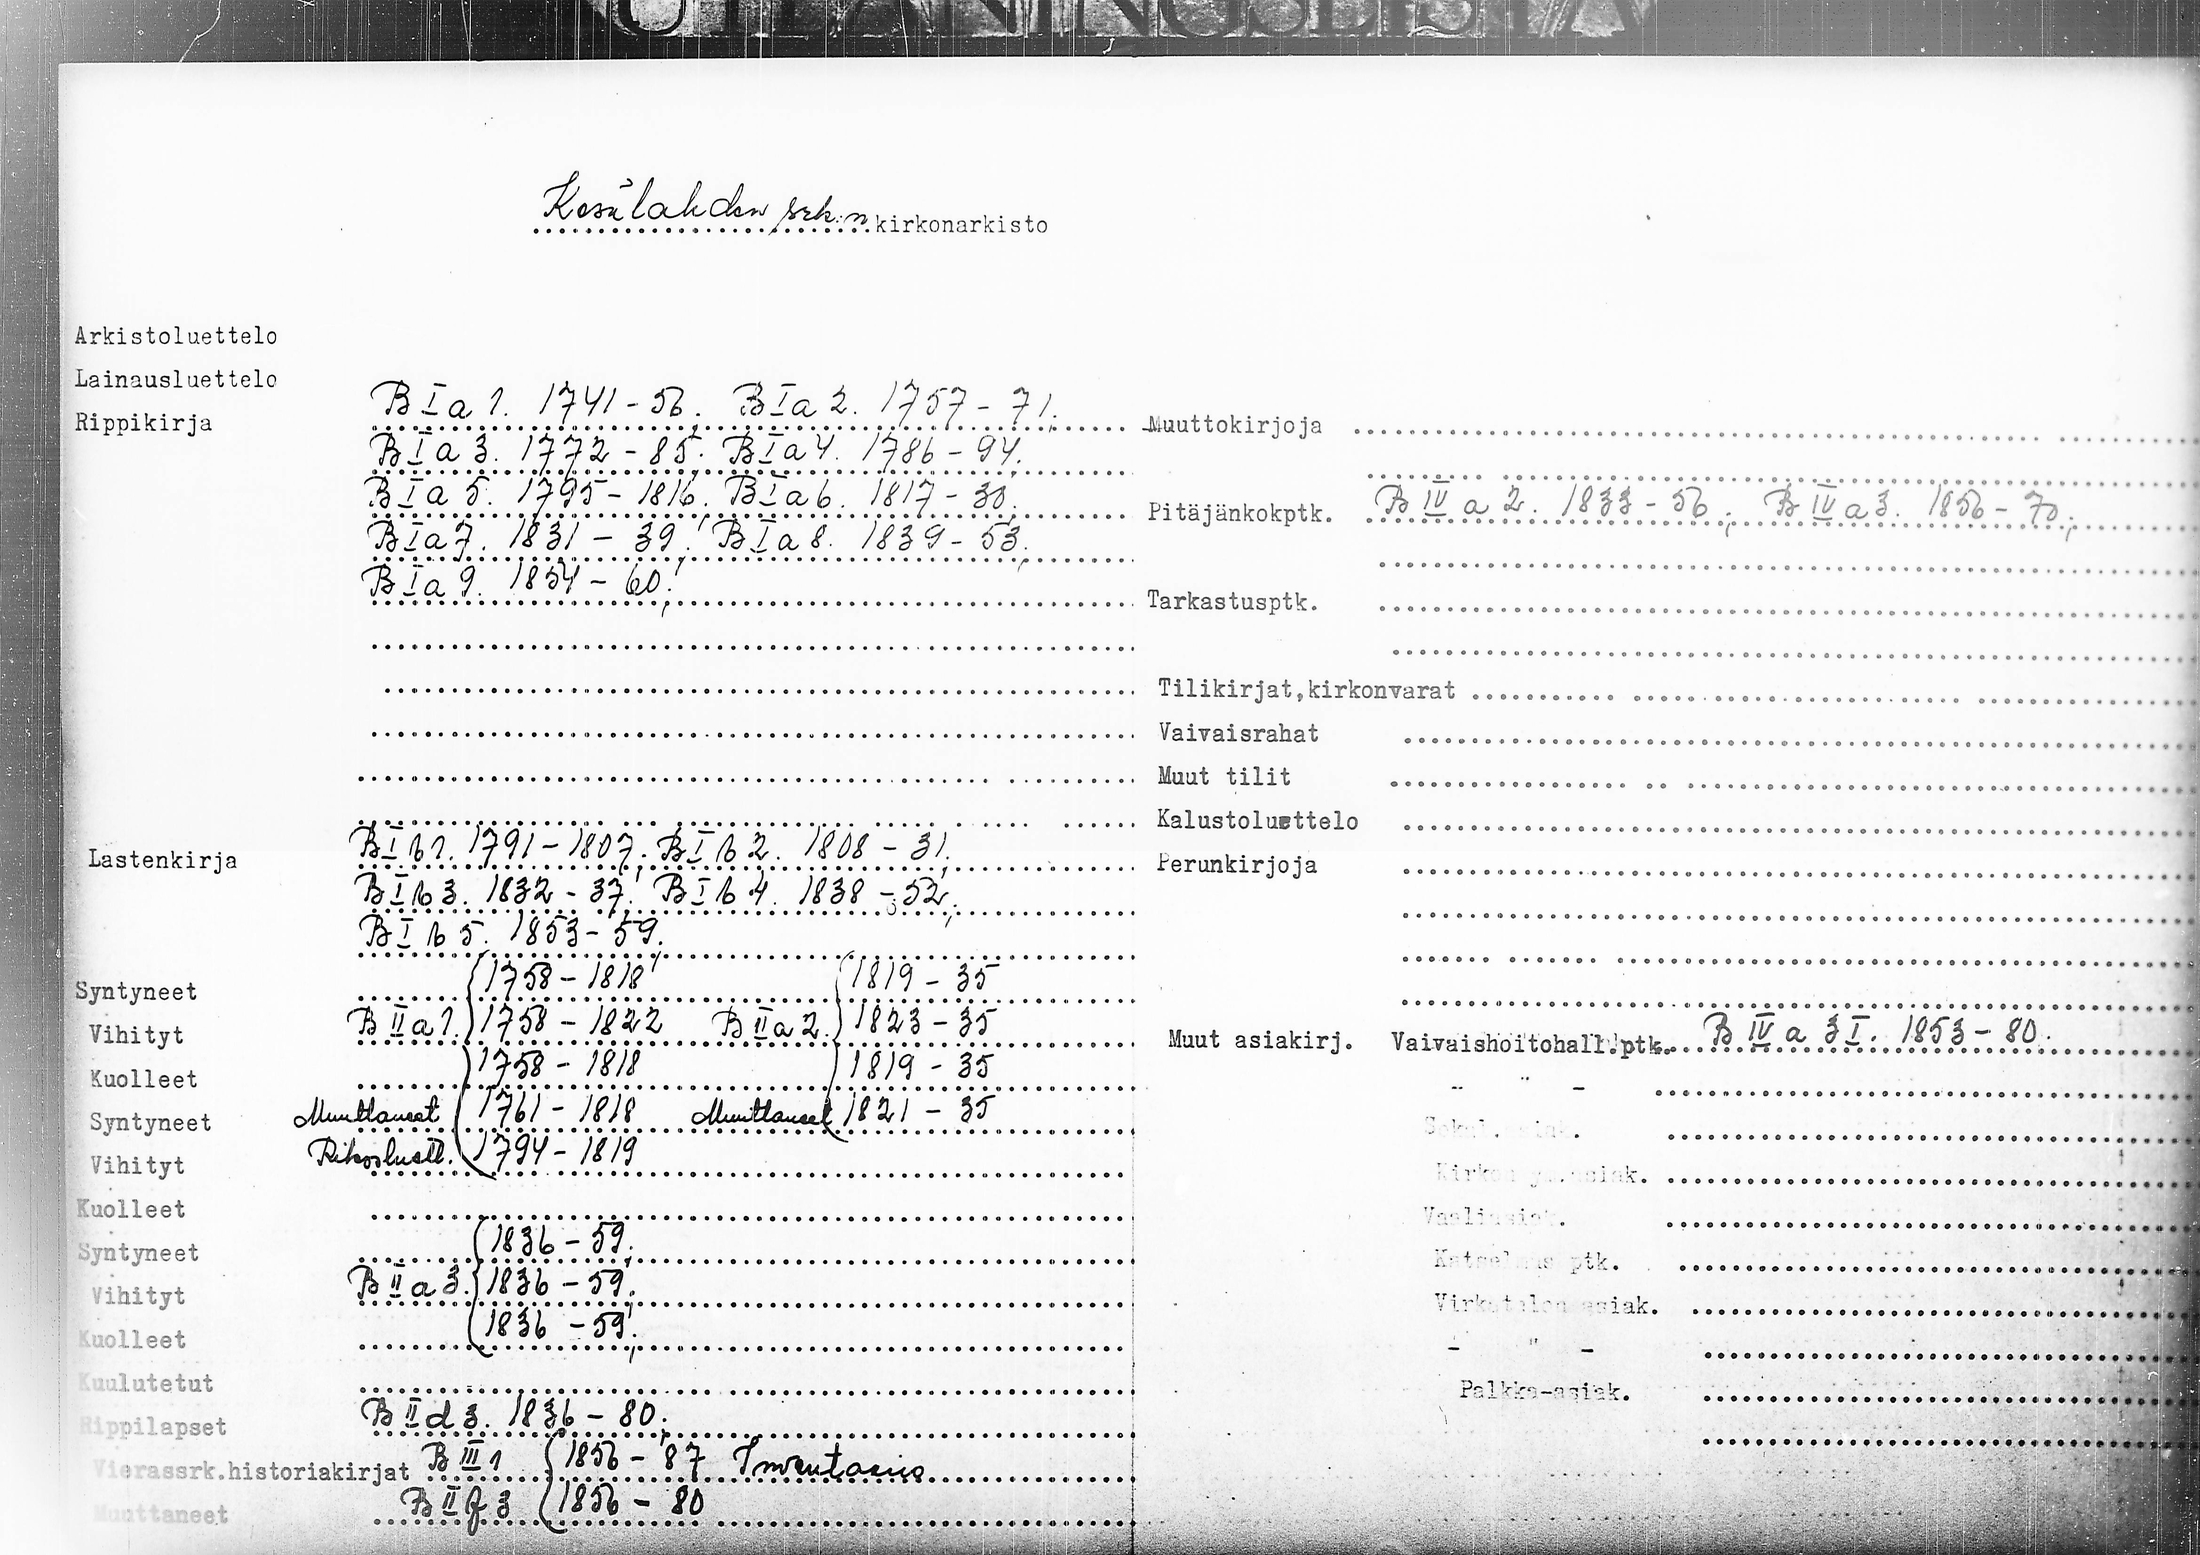 Kesälahden srk:n kirkonarkisto
Arkistoluettelo
Lainausluettelo
Rippikirja B I a 1. 1741-56. B I a 2. 1757-71.
B I a 3. 1772-85. B I a 4. 1786-94.
B I a 5. 1795-1816. B I a 6. 1817-30.
B I a 7. 1831-39. B I a 8. 1839-53.
B I a 9. 1854-60.
Lastenkirja B I b 1. 1791-1807. B I b 2. 1808-31.
B I b 3. 1832-37. B I b 4. 1838-52.
B I b 5. 1853-59.
Syntyneet 1758-1818 1819-35
Vihityt B II a 1. 1758-1822 B II a 2. 1823-35
Kuolleet 1758-1818 1819-35
Syntyneet Muuttaneet 1761-1818 Muuttaneet 1821-35
Vihityt Rikosluett. 1794-1819
Kuolleet
Syntyneet 1836-59.
Vihityt B II a 3. 1836-59.
Kuolleet 1836-59.
Kuulutetut
Rippilapset B II d 3. 1836-80.
Vierassrk.historiakirjat B III 1 1856-87 Inventario
Muuttaneet B II f 3 1856-80
Muuttokirjoja
Pitäjänkokptk. B IV a 2. 1833-56; B IV a 3. 1856-70;
Tarkastusptk.
Tilikirjat,kirkonvarat
Vaivaisrahat
Muut tilit
Kalustoluettelo
Perunkirjoja
Muut asiakirj. Vaivaishoitohall.ptk. B IV a 3 I. 1853-80.
- " -
Virkatalon asiak.
- " -
Palkka-asiak.